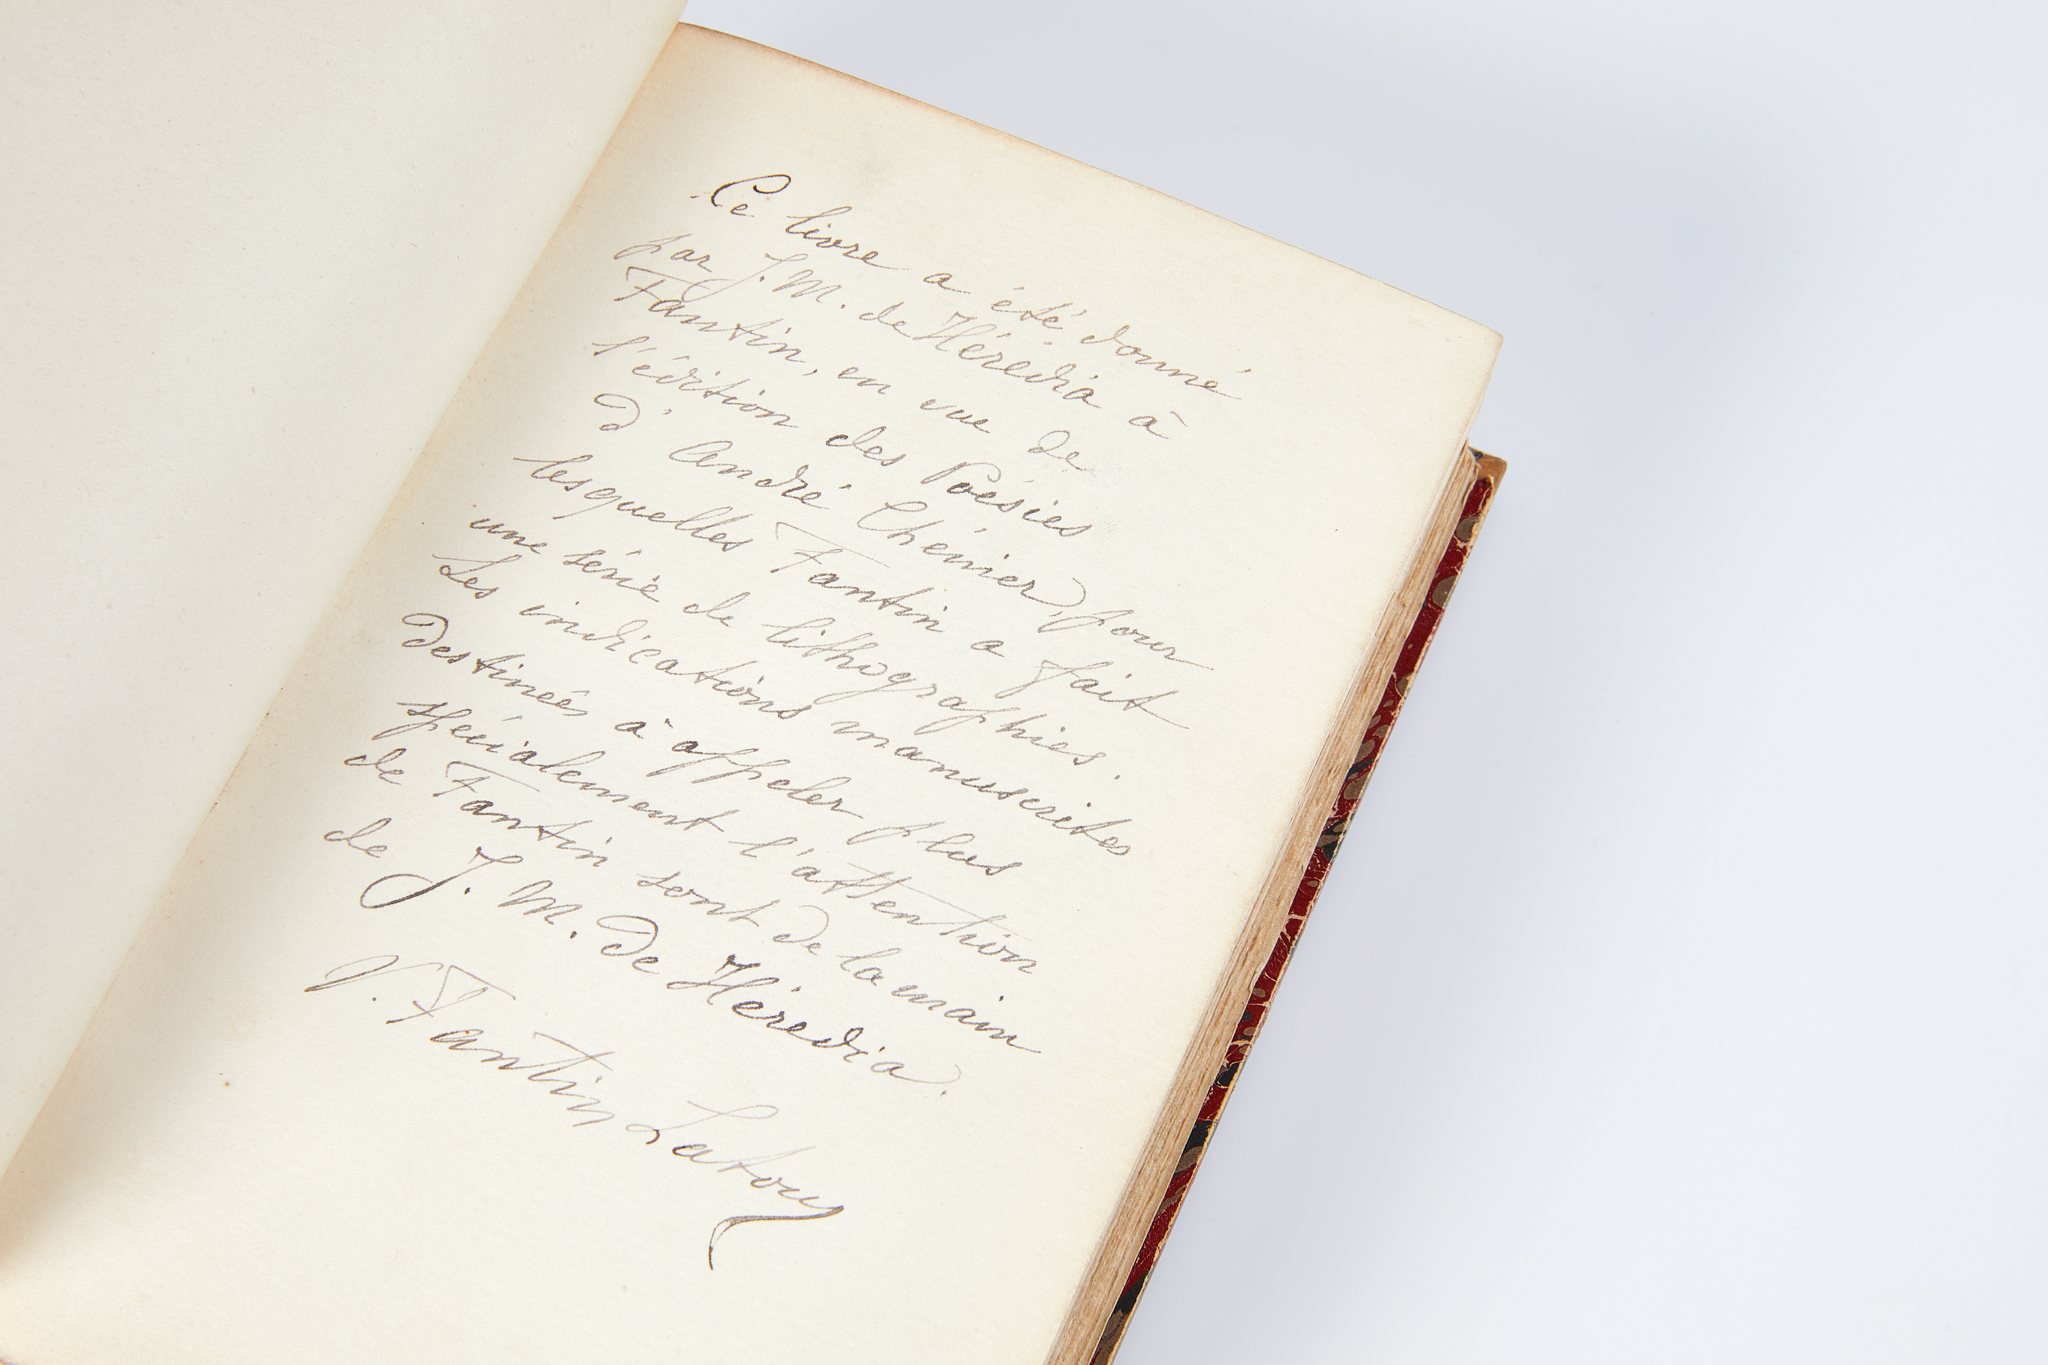 Ce livre a été donné
par J. M. de Hérédia à
Fantin, en vue de
l'édition des Poésies
d'André Chénier, pour
lesquelles Fantin a fait
une série de lithographies.
Les indications manuscrites
destinées à appeler plus
spécialement l'attention
de Fantin sont de la main
de J. M. de Hérédia.
V. Fantin Latour